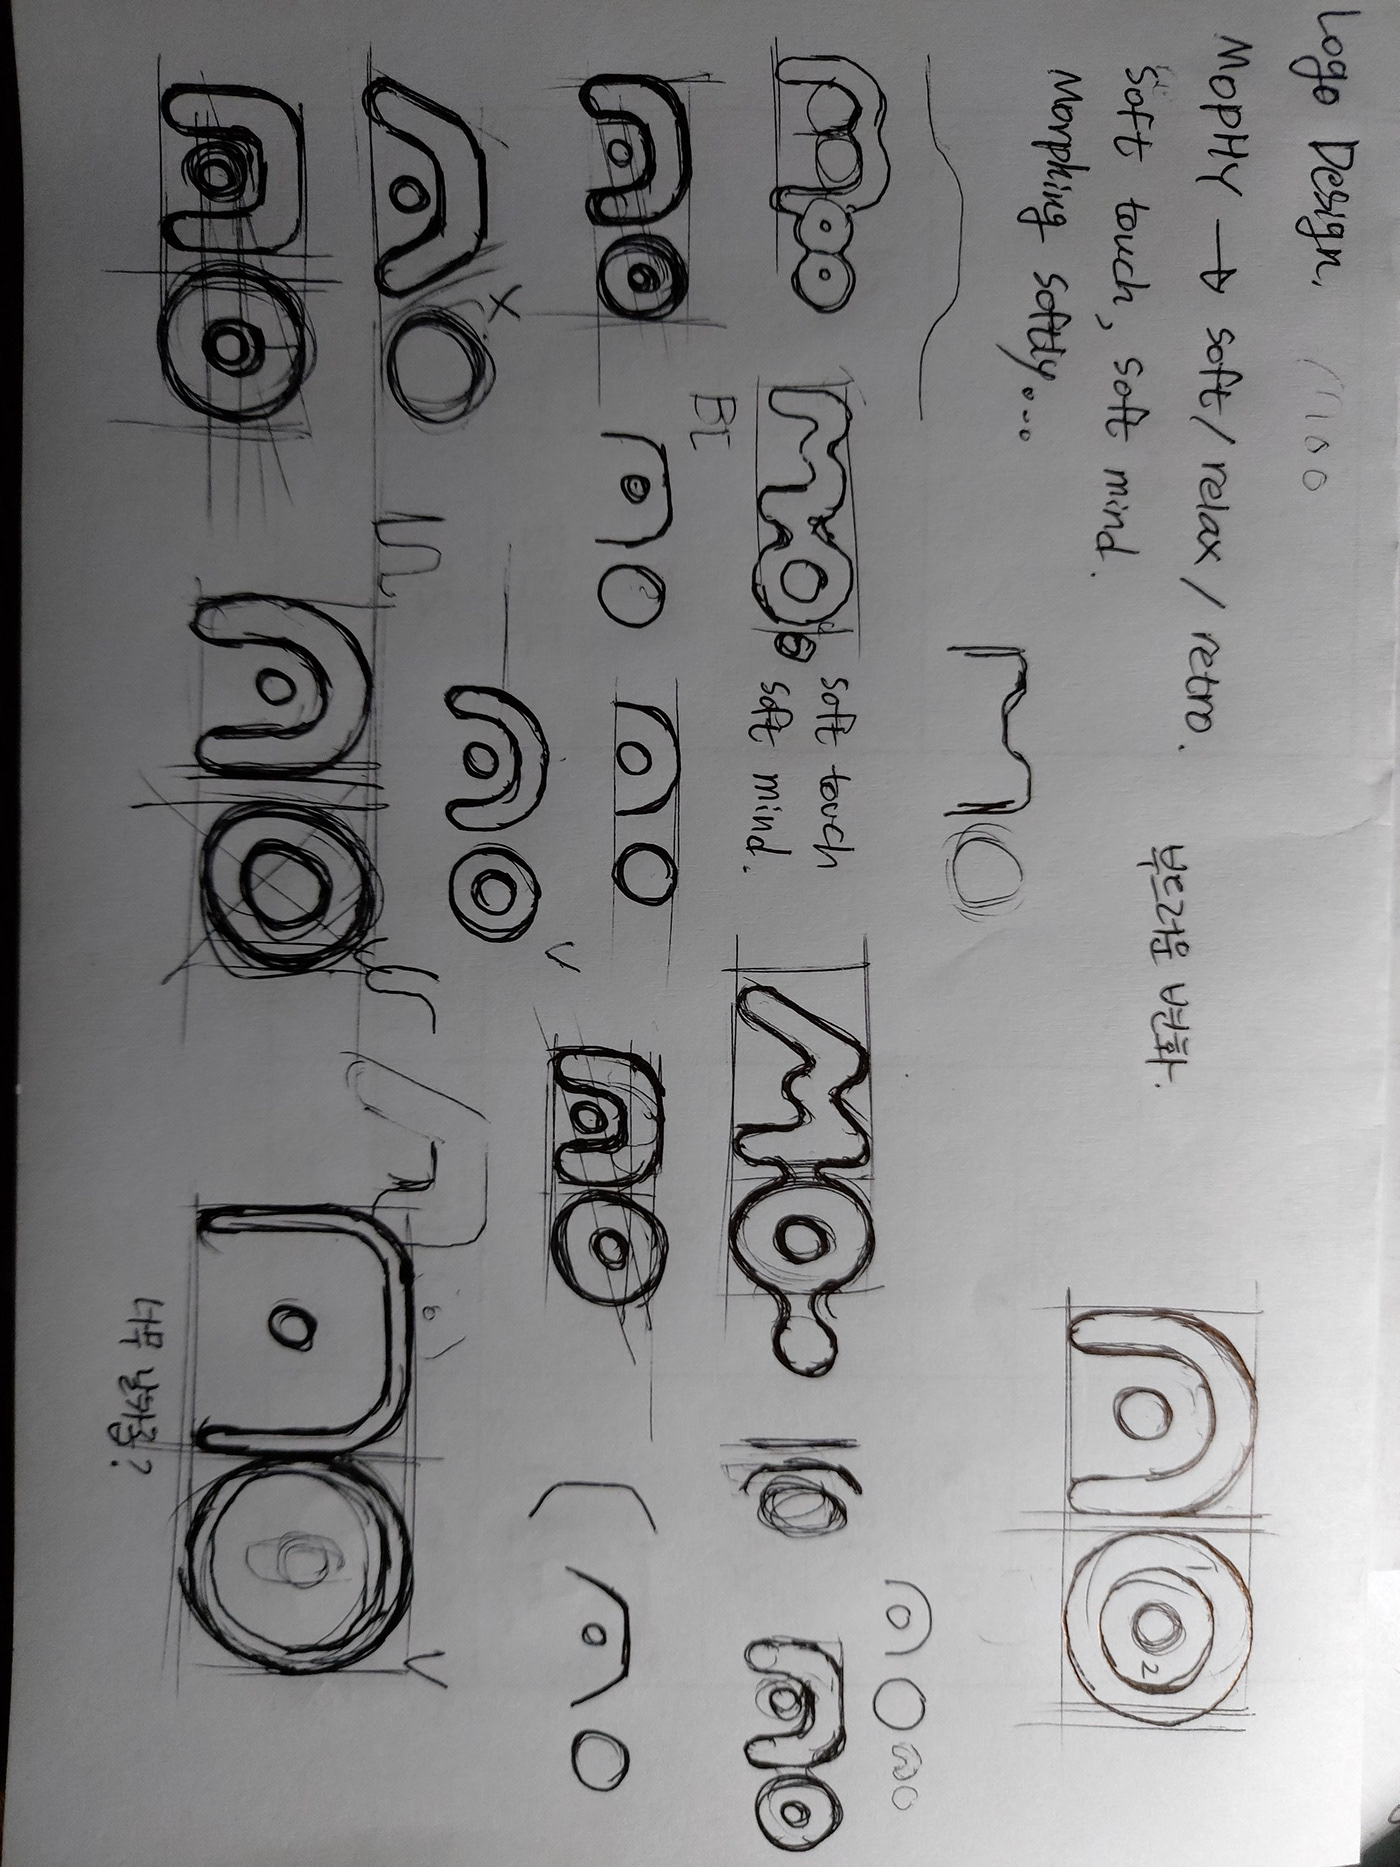 Logo Design.
MOPHY → soft / relax / retro.
soft touch, soft mind.
부드러운 변화.
Morphing softly...
soft touch
soft mind.
BI
너무 날카롭?